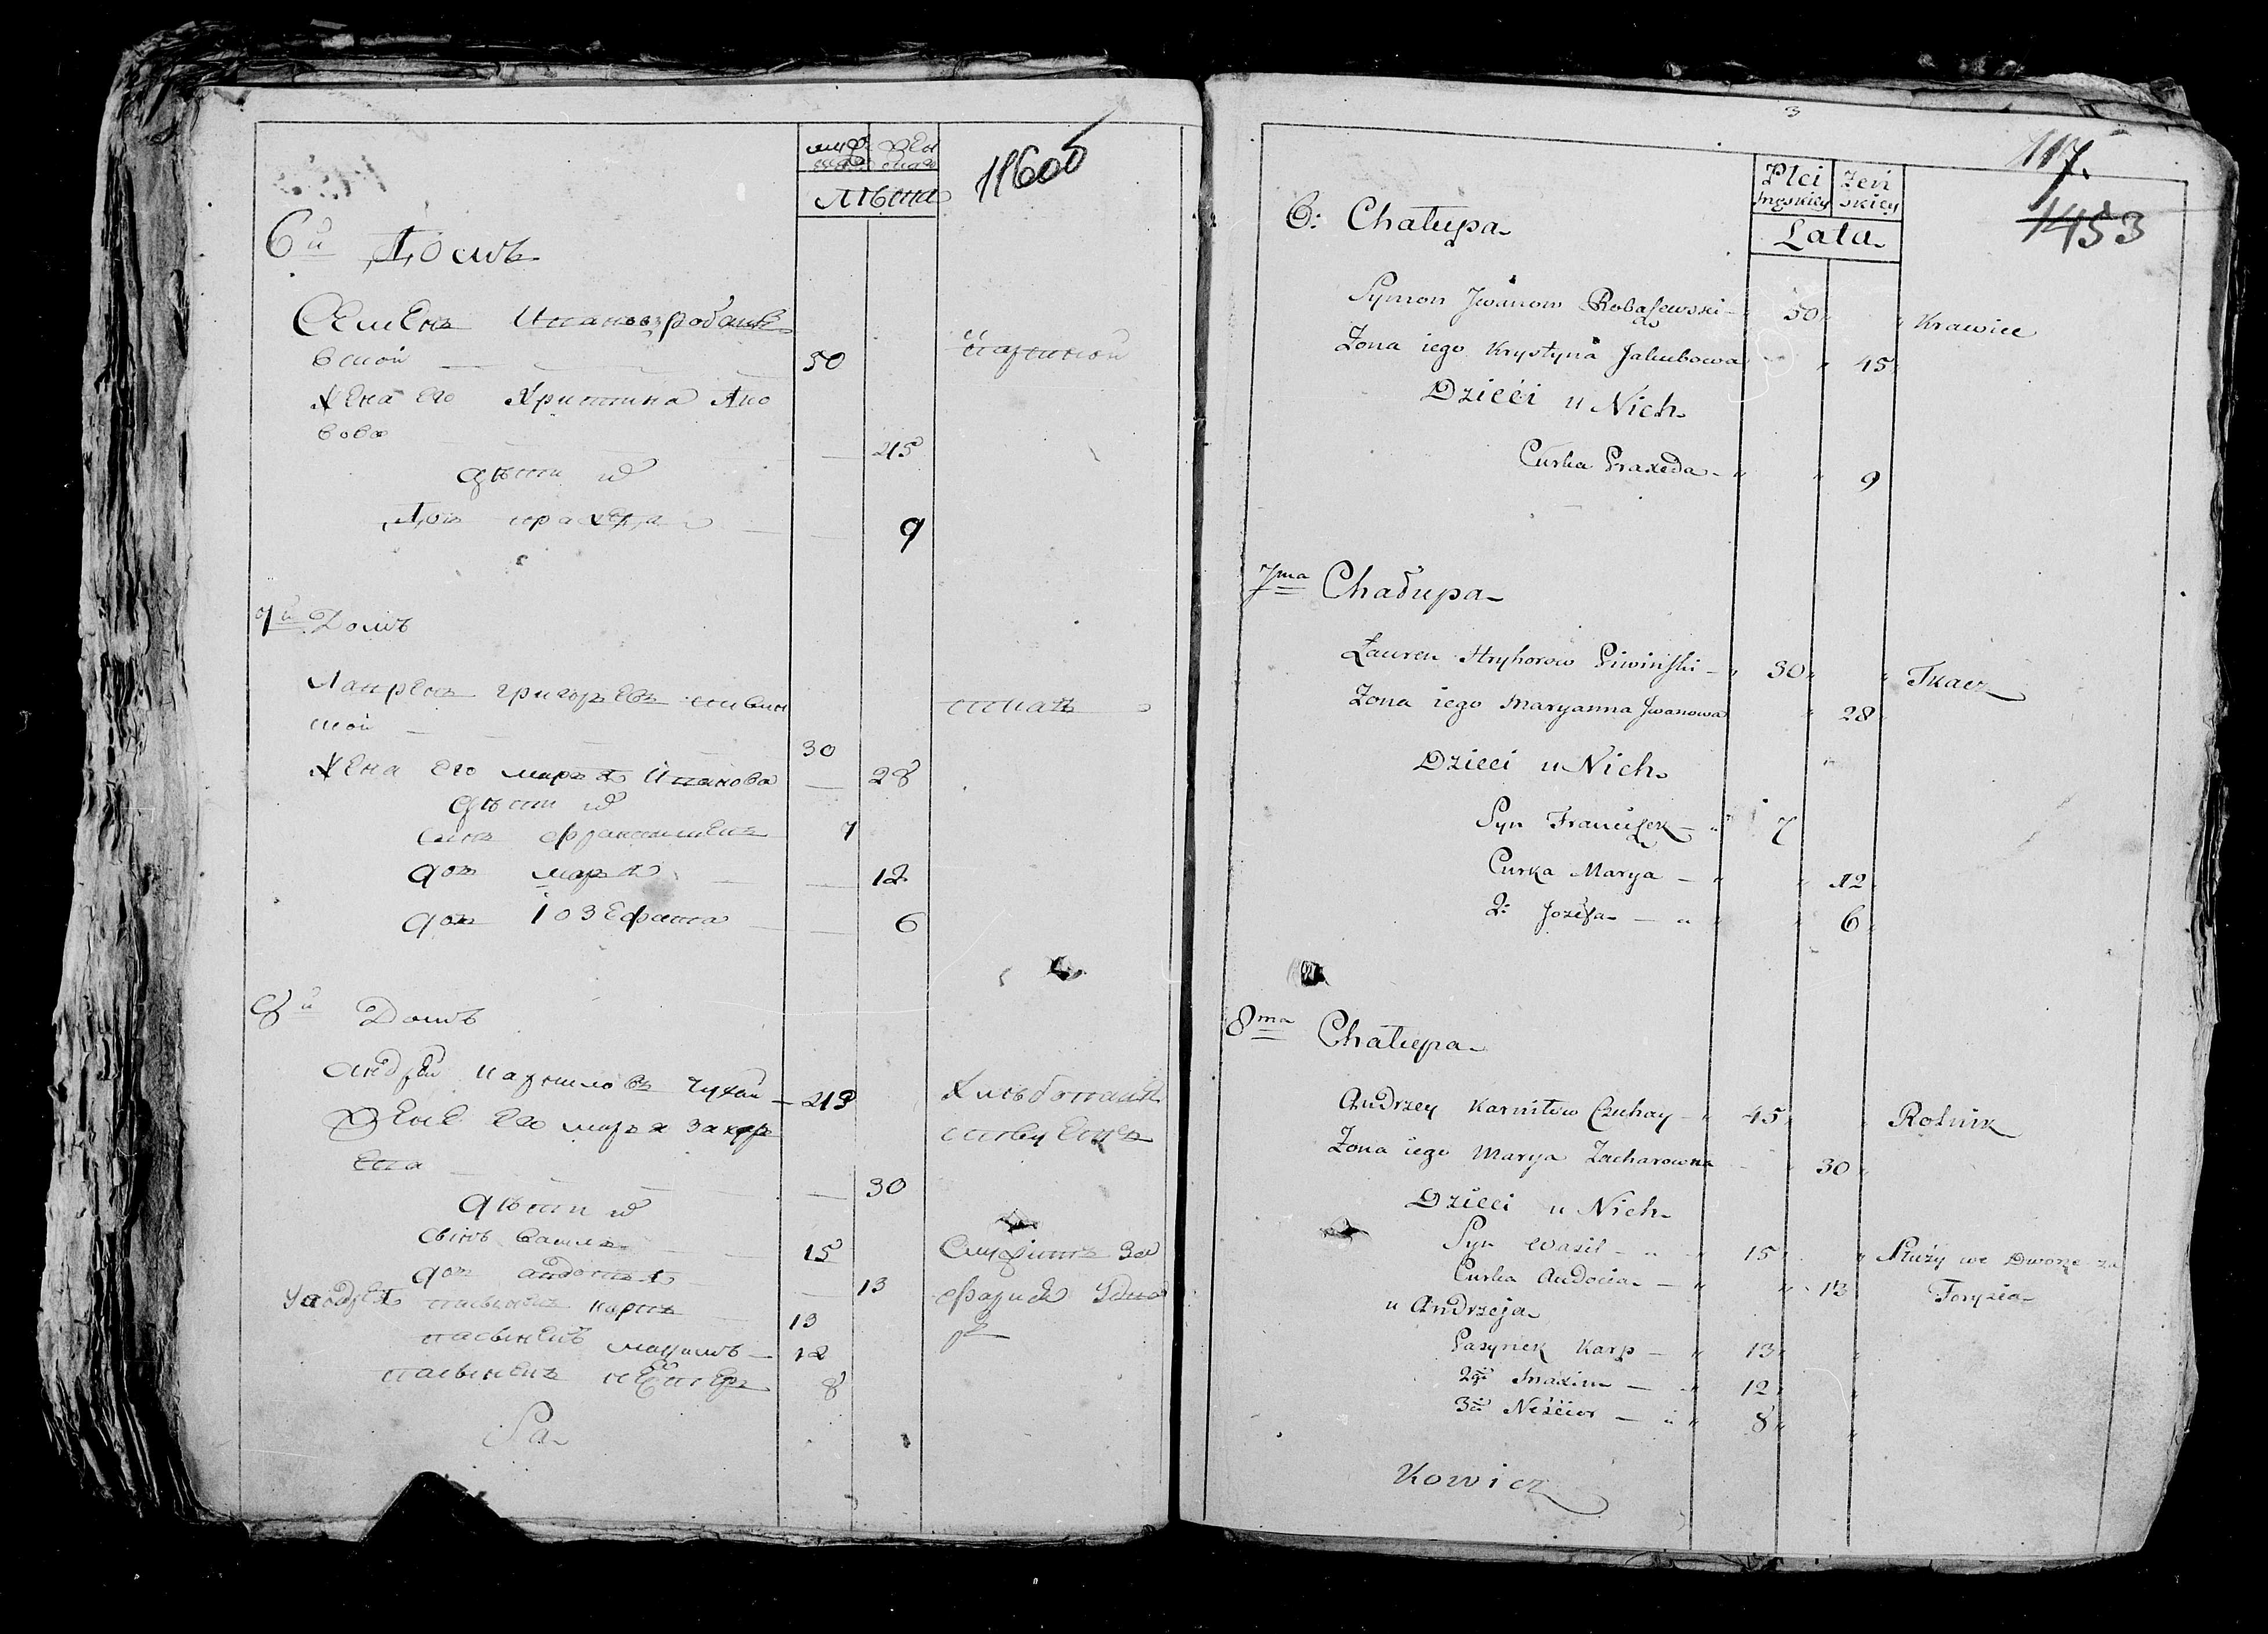 муж: жен
ска ска
Лѣта
116об
6й Домъ
Семенъ Ивановъ робашев
ской 50
жена его Христина Яко
вова 45
дѣти их
Дочь праxеда 9
7й Домъ
Лавренъ григорьевъ пивин
ской 30 ткачь
жена его марья Иванова 28
дѣти их
сынъ францишекъ 7
дочь марья 12
дочь Iозефата 6
8й Домъ
андрей карниловъ чухай 45 хлѣбопашец
жена его марья захар
ева 30
дѣти их
сынъ василь 15 служитъ за
дочь авдотья 13
У андрея пасынекъ карпъ 13
пасынекъ максимъ 12
пасынекъ несцеръ 8
Pa
3
117.
1453
Plci Żeń
męskiey skiey
Lata
6: Chałupa
Symon Jwanow Robaszewski 50 Krawiec
Żona iego Krystyna Jakubowa 45
Dzieci u Nich
Curka Praxeda 9
7ma Chałupa
Ławren Hryhorow Piwiński 30 Tkacz
Żona iego Maryanna Jwanowa 28
Dzieci u Nich
Syn Franciszek 7
Curka Marya 12
2: Jozefa 6
8ma Chałupa
Andrzey Karniłow Czuhay 45 Rolnik
Żona iego Marya Zacharowna 30
Dzieci u Nich
Syn Wasil 15 Służy we Dworze za
Curka Audocia 13 Foryzia
u Andrzeja
Pasynek Karp 13
2gi Maxim 12
3ci Nieścior 8
Kowicz